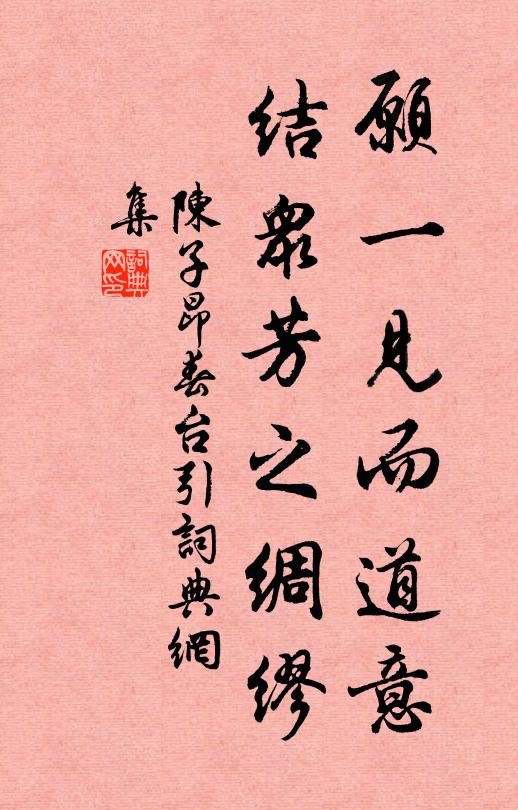 願一見而道意
結眾芳之綢繆
陳子昂春台引詞典網
集
詞典
网印